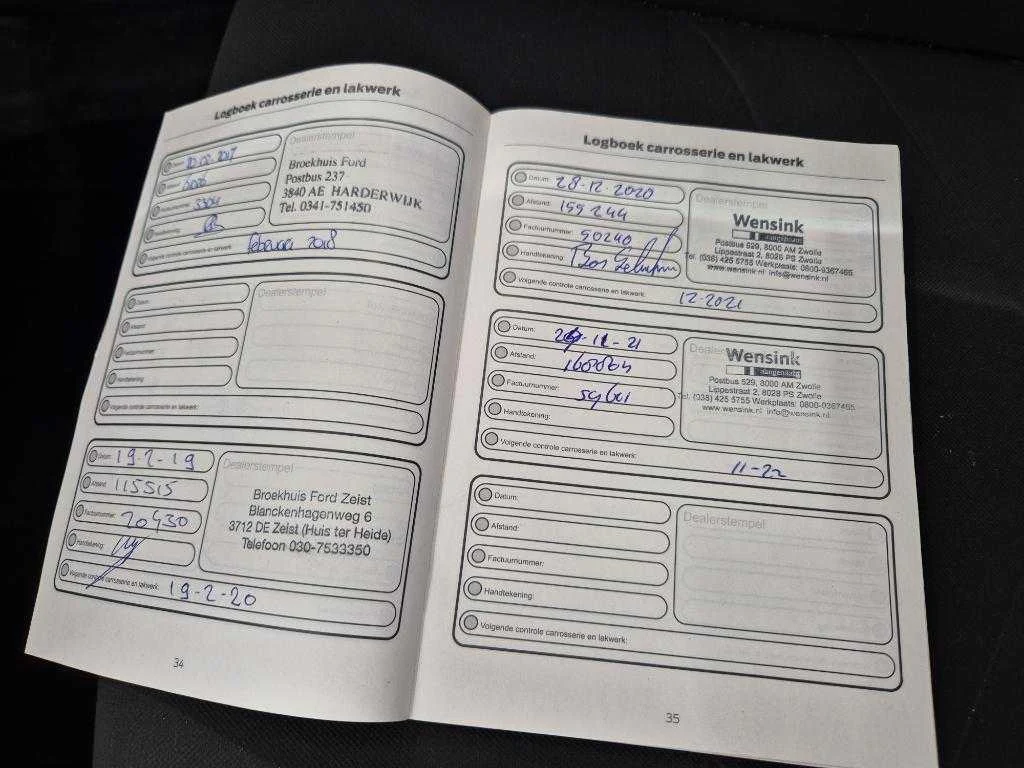 Logboek carrosserie en lakwerk
Datum:
Dealerstempel
Broekhuis Ford
Postbus 237
3840 AE HARDERWIJK
Tel. 0341-751450
Afstand:
Factuurnummer: 5304
Handtekening:
Volgende controle carrosserie en lakwerk: februari 2018
Datum:
Dealerstempel
Afstand:
Factuurnummer:
Handtekening:
Volgende controle carrosserie en lakwerk:
Datum: 19-2-19
Dealerstempel
Afstand: 115515
Factuurnummer: 20430
Handtekening:
Broekhuis Ford Zeist
Blanckenhagenweg 6
3712 DE Zeist (Huis ter Heide)
Telefoon 030-7533350
Volgende controle carrosserie en lakwerk: 19-2-20
34
Logboek carrosserie en lakwerk
Datum: 28-12-2020
Dealerstempel
Afstand: 155244
Factuurnummer: 50240
Handtekening:
Wensink
Postbus 529, 8000 AM Zwolle
Lippestraat 2, 8028 PS Zwolle
Tel. (038) 425 5755 Werkplaats: 0800-9367465
www.wensink.nl info@wensink.nl
Volgende controle carrosserie en lakwerk: 12-2021
Datum: 11-21
Dealerstempel
Afstand:
Factuurnummer:
Handtekening:
Wensink
Postbus 529, 8000 AM Zwolle
Lippestraat 2, 8028 PS Zwolle
Tel. (038) 425 5755 Werkplaats: 0800-9367465
www.wensink.nl info@wensink.nl
Volgende controle carrosserie en lakwerk: 11-22
Datum:
Dealerstempel
Afstand:
Factuurnummer:
Handtekening:
Volgende controle carrosserie en lakwerk:
35